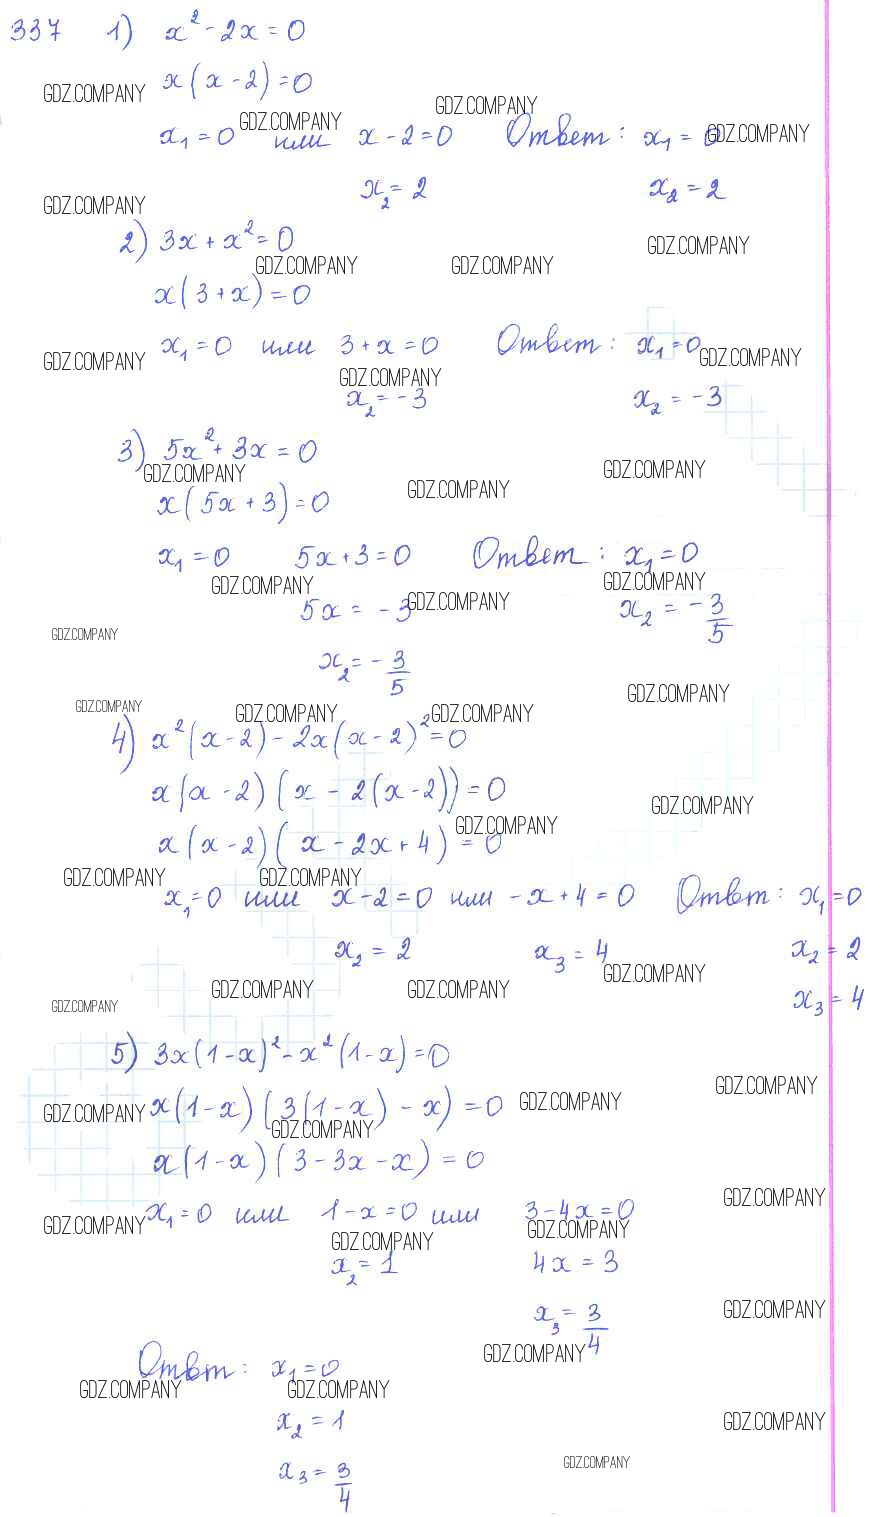 337 1) x² - 2x = 0
x(x - 2) = 0
x₁ = 0 или x - 2 = 0 Ответ: x₁ = 0
x₂ = 2 x₂ = 2
2) 3x + x² = 0
x(3 + x) = 0
x₁ = 0 или 3 + x = 0 Ответ: x₁ = 0
x₂ = -3 x₂ = -3
3) 5x² + 3x = 0
x(5x + 3) = 0
x₁ = 0 5x + 3 = 0 Ответ: x₁ = 0
5x = -3 x₂ = -3/5
x₂ = -3/5
4) x²(x - 2) - 2x(x - 2)² = 0
x(x - 2)(x - 2(x - 2)) = 0
x(x - 2)(x - 2x + 4) = 0
x₁ = 0 или x - 2 = 0 или -x + 4 = 0 Ответ: x₁ = 0
x₂ = 2 x₃ = 4 x₂ = 2
x₃ = 4
5) 3x(1 - x)² - x²(1 - x) = 0
x(1 - x)(3(1 - x) - x) = 0
x(1 - x)(3 - 3x - x) = 0
x₁ = 0 или 1 - x = 0 или 3 - 4x = 0
x₂ = 1 4x = 3
x₃ = 3/4
Ответ: x₁ = 0
x₂ = 1
x₃ = 3/4
GDZ.COMPANY